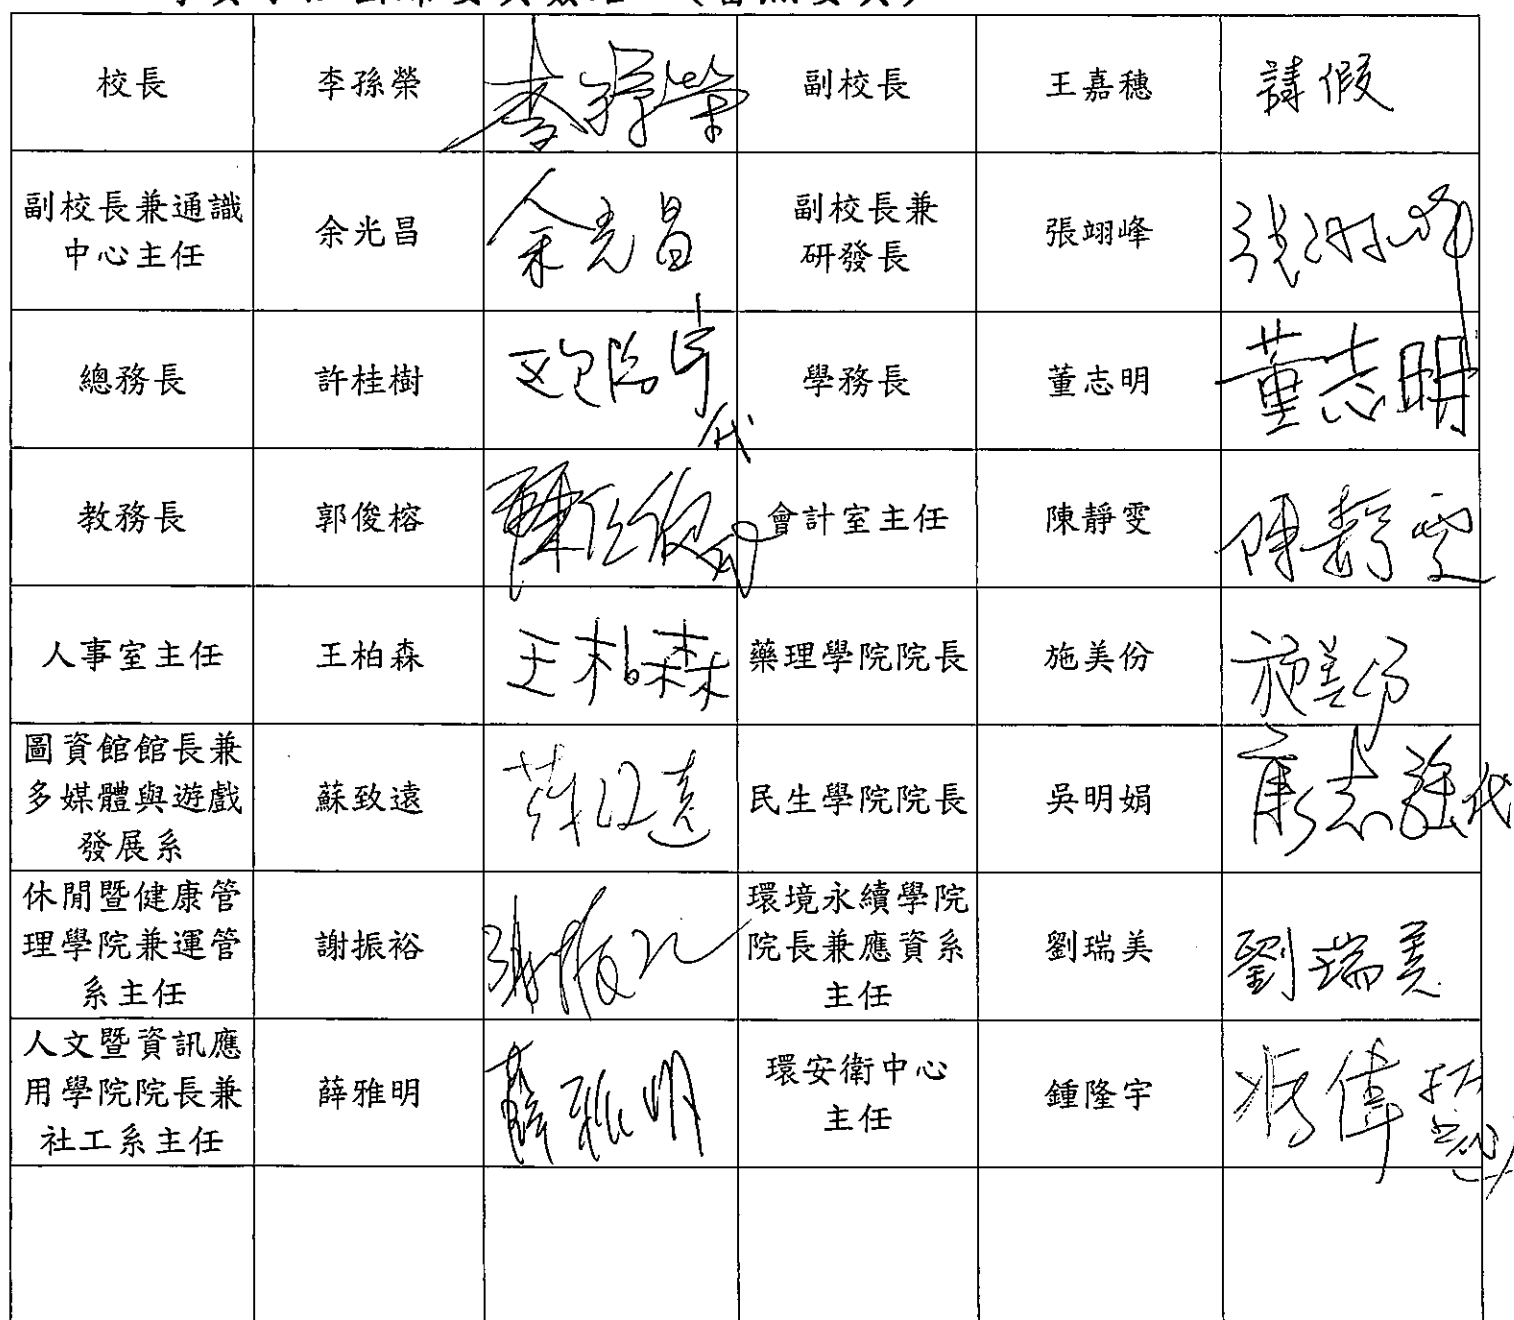 校長 李孫榮 李孫榮 副校長 王嘉穗 請假
副校長兼通識
中心主任 余光昌 余光昌 副校長兼
研發長 張翊峰 張翊峰
總務長 許桂樹 代 學務長 董志明 董志明
教務長 郭俊榕 會計室主任 陳靜雯 陳靜雯
人事室主任 王柏森 王柏森 藥理學院院長 施美份 施美份
圖資館館長兼
多媒體與遊戲
發展系 蘇致遠 蘇致遠 民生學院院長 吳明娟 代
休閒暨健康管
理學院兼運管
系主任 謝振裕 謝振裕 環境永續學院
院長兼應資系
主任 劉瑞美 劉瑞美
人文暨資訊應
用學院院長兼
社工系主任 薛雅明 薛雅明 環安衛中心
主任 鍾隆宇